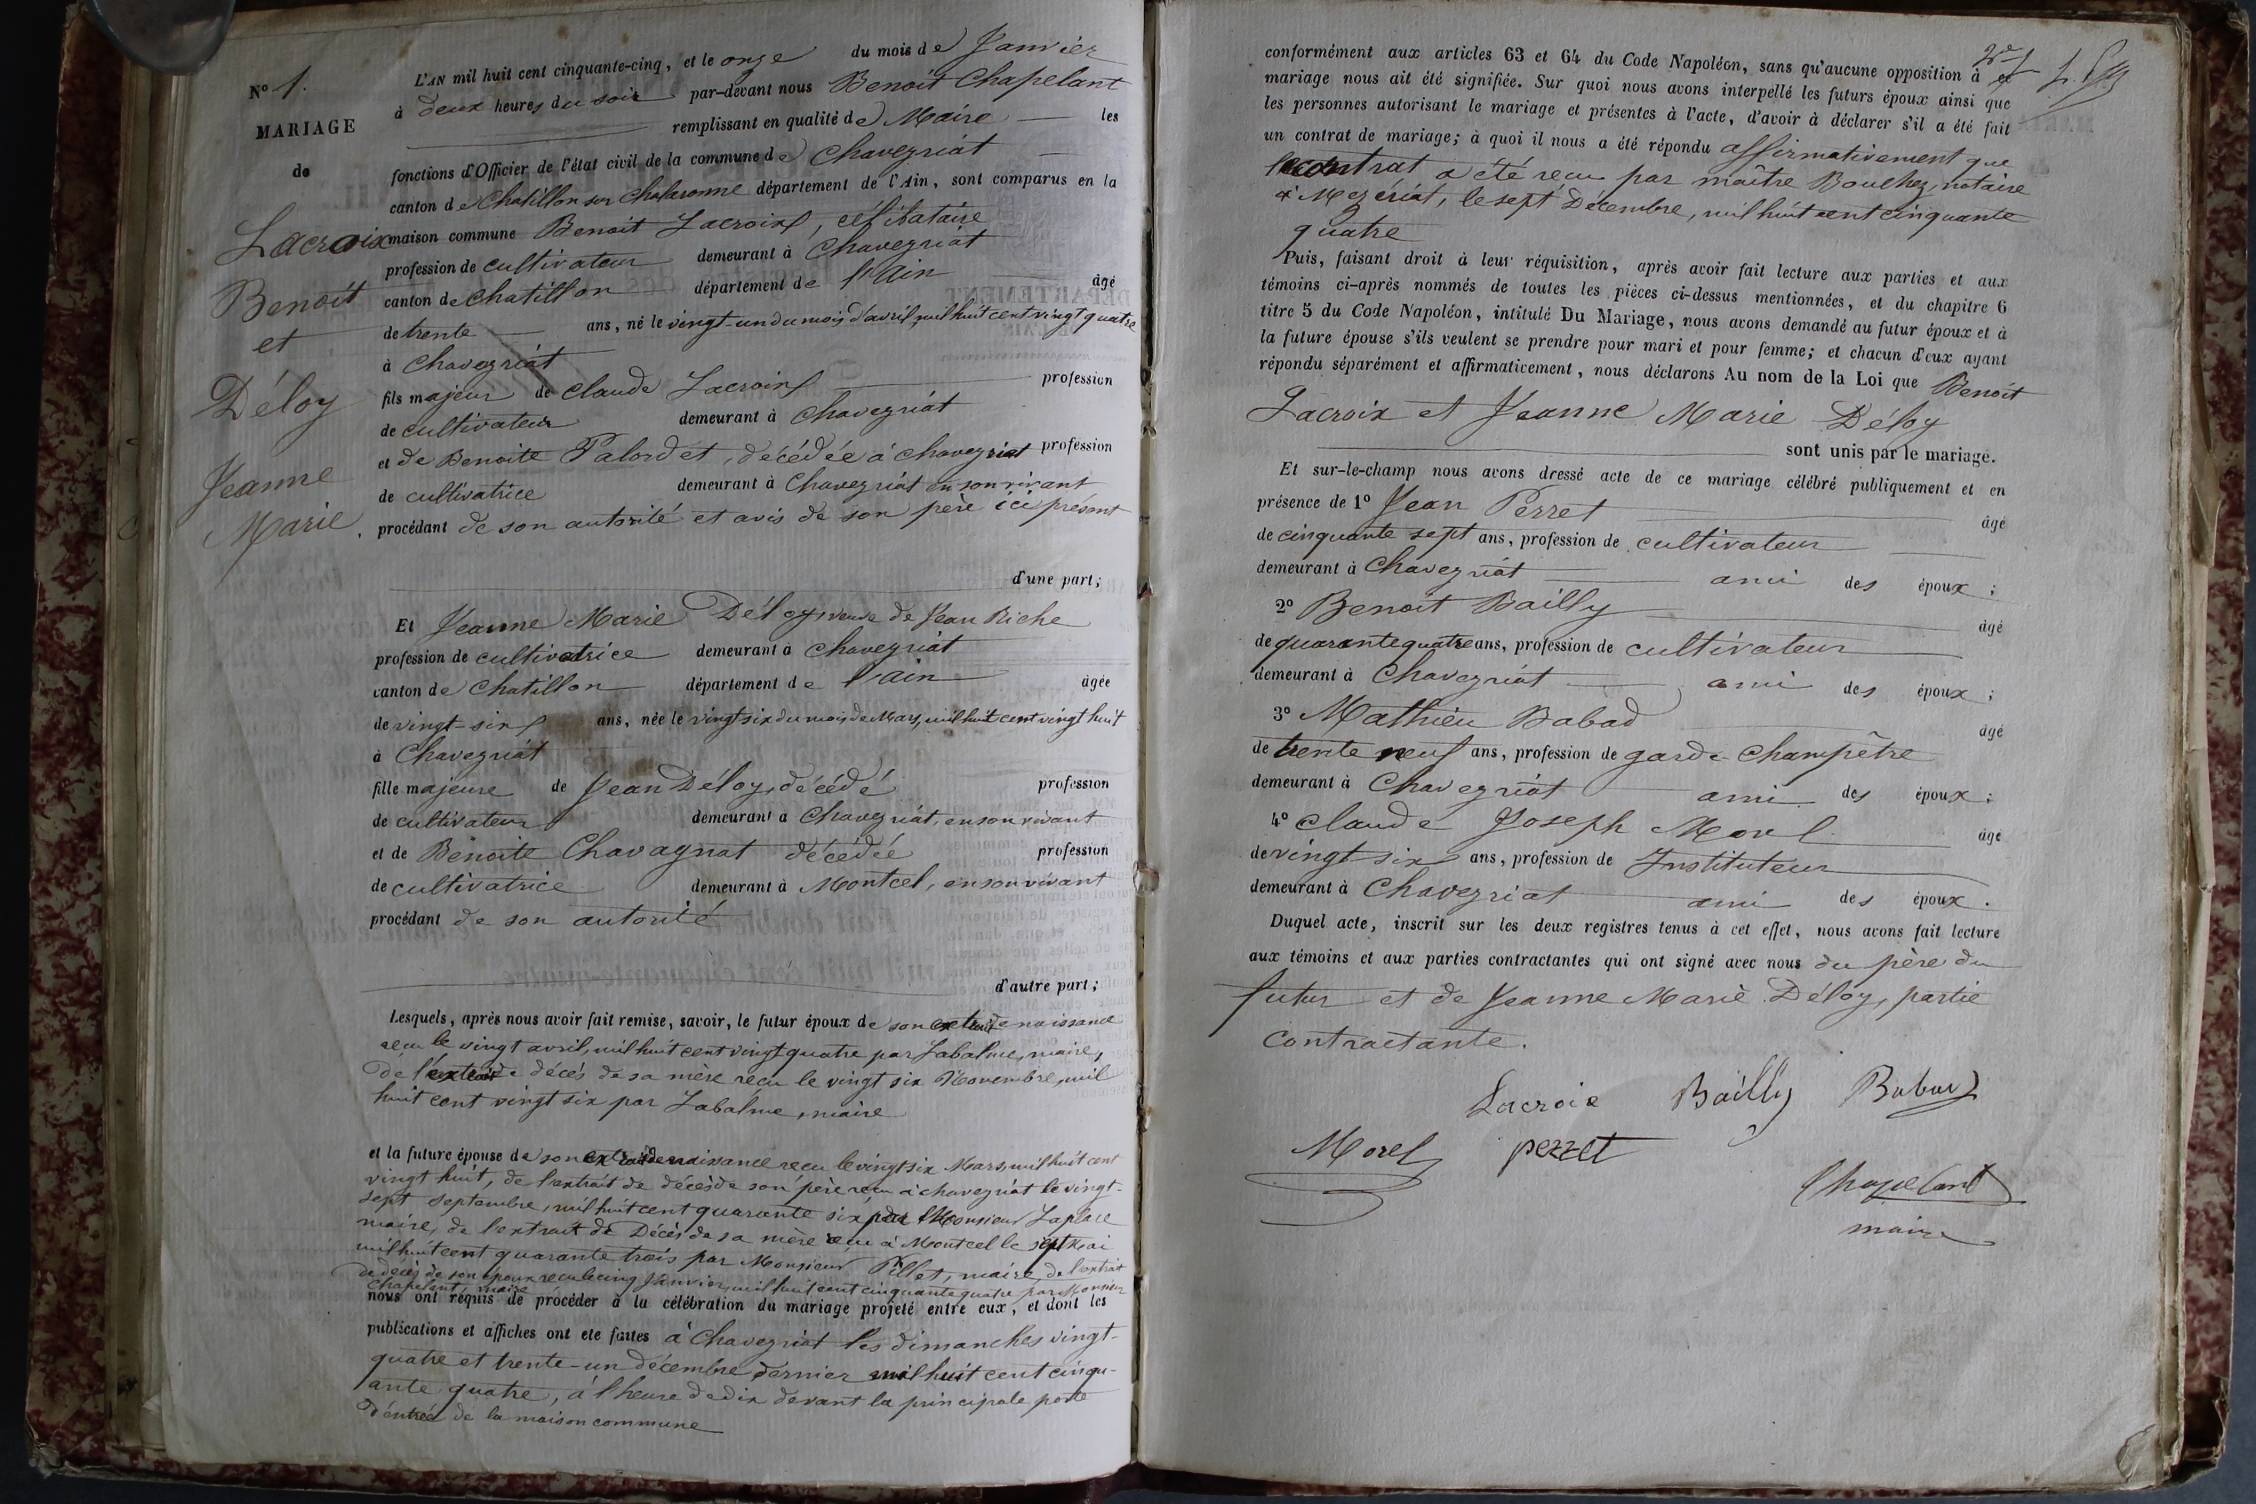 N° 1.
MARIAGE
de
Lacroix
Benoit
et
Déloy
Jeanne
Marie.
L'AN mil huit cent cinquante-cinq, et le onze du mois de Janvier
à deux heures du soir par-devant nous Benoit Chapelant
remplissant en qualité de Maire les
fonctions d'Officier de l'état civil de la commune de Chaveyriat
canton de Chatillon sur Chalaronne département de l'Ain, sont comparus en la
maison commune Benoit Lacroix, célibataire
profession de cultivateur demeurant à Chaveyriat
canton de Chatillon département de l'Ain âgé
de trente ans, né le vingt-un du mois d'avril, mil huit cent vingt quatre
à Chaveyriat
fils majeur de Claude Lacroix profession
de cultivateur demeurant à Chaveyriat
et de Benoite Palordet, décédée à chaveyriat profession
de cultivatrice demeurant à Chaveyriat en son vivant
procédant de son autorité et avis de son père ici présent
d'une part;
Et Jeanne Marie Déloy, veuve de Jean Riche
profession de cultivatrice demeurant à Chaveyriat
canton de Chatillon département de l'ain âgée
de vingt-six ans, née le vingt six du mois de Mars, mil huit cent vingt huit
à Chaveyriat
fille majeure de Jean Déloy, décédé profession
de cultivateur demeurant à Chaveyriat, en son vivant
et de Benoite Chavagnat décédée profession
de cultivatrice demeurant à Montcel, en son vivant
procédant de son autorité
d'autre part;
Lesquels, après nous avoir fait remise, savoir, le futur époux de son extrait de naissance
recu le vingt avril, mil huit cent vingt quatre par Labalme, maire,
de l'extrait de décès de sa mère recu le vingt six Novembre, mil
huit cent vingt six par Labalme, maire
et la future épouse de son extrait de naissance recu le vingt six Mars, mil huit cent
vingt huit, de l'extrait de décès de son père recu à chaveyriat le vingt-
sept septembre, mil huit cent quarante six par Monsieur Laplace
maire, de l'extrait de Décès de sa mère recu à Montcel le sept Mai
mil huit cent quarante trois par Monsieur Pillet, maire, de l'extrait
de décès de son époux recu le cinq Janvier, mil huit cent cinquante quatre par Monsieur
Chapelant, maire
nous ont requis de procéder à la célébration du mariage projeté entre eux, et dont les
publications et affiches ont été faites à Chaveyriat les dimanches vingt-
quatre et trente-un décembre dernier mil huit cent cinqu-
ante quatre, à l'heure de dix devant la principale porte
d'entrée de la maison commune
conformément aux articles 63 et 64 du Code Napoléon, sans qu'aucune opposition à ce
mariage nous ait été signifiée. Sur quoi nous avons interpellé les futurs époux ainsi que
les personnes autorisant le mariage et présentes à l'acte, d'avoir à déclarer s'il a été fait
un contrat de mariage; à quoi il nous a été répondu affirmativement que
le contrat a été recu par maître Bouchez, notaire
à Mezériat, le sept Décembre, mil huit cent cinquante
quatre
Puis, faisant droit à leur réquisition, après avoir fait lecture aux parties et aux
témoins ci-après nommés de toutes les pièces ci-dessus mentionnées, et du chapitre 6
titre 5 du Code Napoléon, intitulé Du Mariage, nous avons demandé au futur époux et à
la future épouse s'ils veulent se prendre pour mari et pour femme; et chacun d'eux ayant
répondu séparément et affirmativement, nous déclarons Au nom de la Loi que Benoit
Lacroix et Jeanne Marie Déloy
sont unis par le mariage.
Et sur-le-champ nous avons dressé acte de ce mariage célébré publiquement et en
présence de 1° Jean Perret âgé
de cinquante sept ans, profession de cultivateur
demeurant à Chaveyriat ami des époux;
2° Benoit Bailly âgé
de quarante quatre ans, profession de cultivateur
demeurant à Chaveyriat, ami des époux;
3° Mathieu Babad âgé
de trente neuf ans, profession de garde champêtre
demeurant à Chaveyriat ami des époux;
4° Claude Joseph Morel âgé
de vingt six ans, profession de Instituteur
demeurant à Chaveyriat ami des époux.
Duquel acte, inscrit sur les deux registres tenus à cet effet, nous avons fait lecture
aux témoins et aux parties contractantes qui ont signé avec nous du père du
futur et de Jeanne Marie Déloy, partie
contractante.
Lacroix Bailly Babad
Morel perret
Chapelant
maire